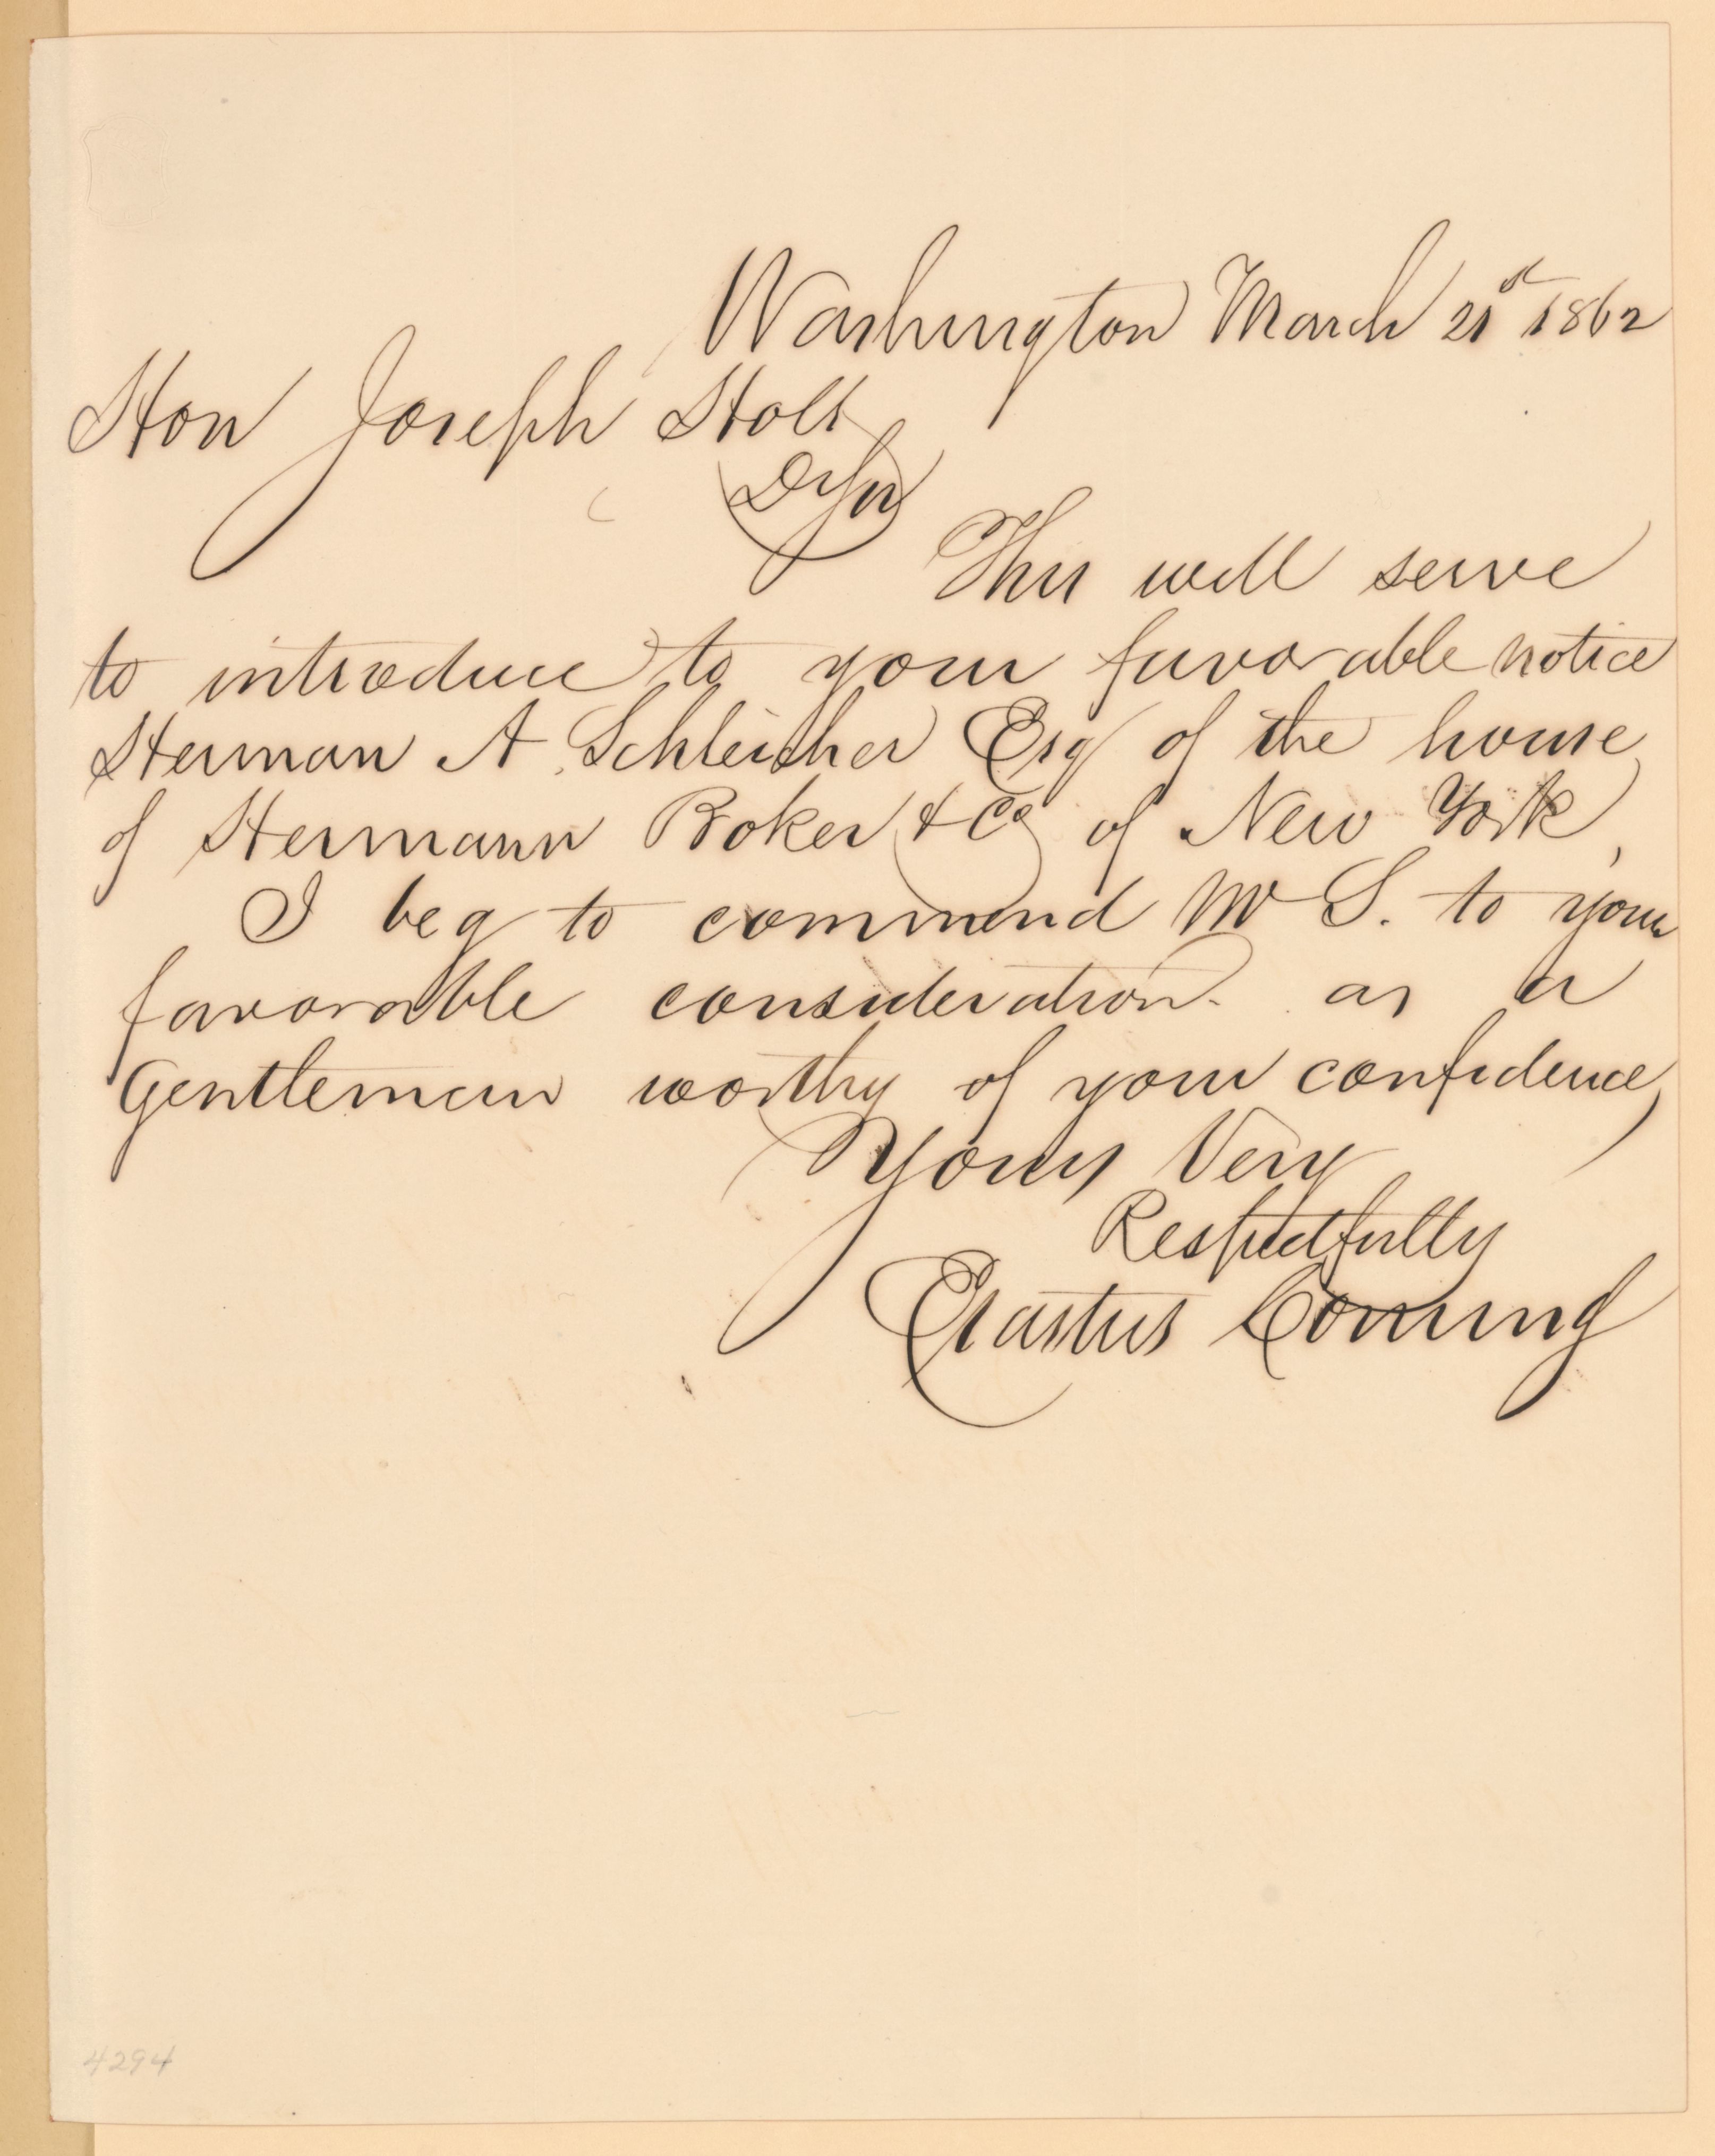 Washington March 21st 1862
Hon Joseph Holt
D Sir
This will serve
to introduce to your favorable notice
Herman A. Schleicher Esq of the house
of Hermann Boker & Co of New York,
I beg to commend Mr S. to your
favorable consideration as a
Gentleman worthy of your confidence,
Yours Very
Respectfully
Erastus Corning
4294